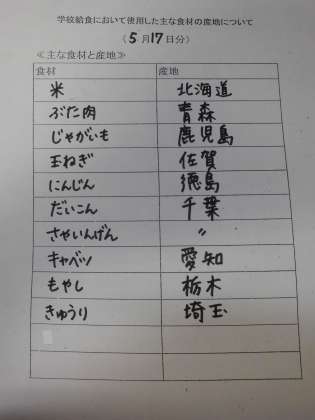 学校給食において使用した主な食材の産地について
(5月17日分)
≪主な食材と産地≫
食材 産地
米 北海道
ぶた肉 青森
じゃがいも 鹿児島
玉ねぎ 佐賀
にんじん 徳島
だいこん 千葉
さやいんげん 〃
キャベツ 愛知
もやし 栃木
きゅうり 埼玉